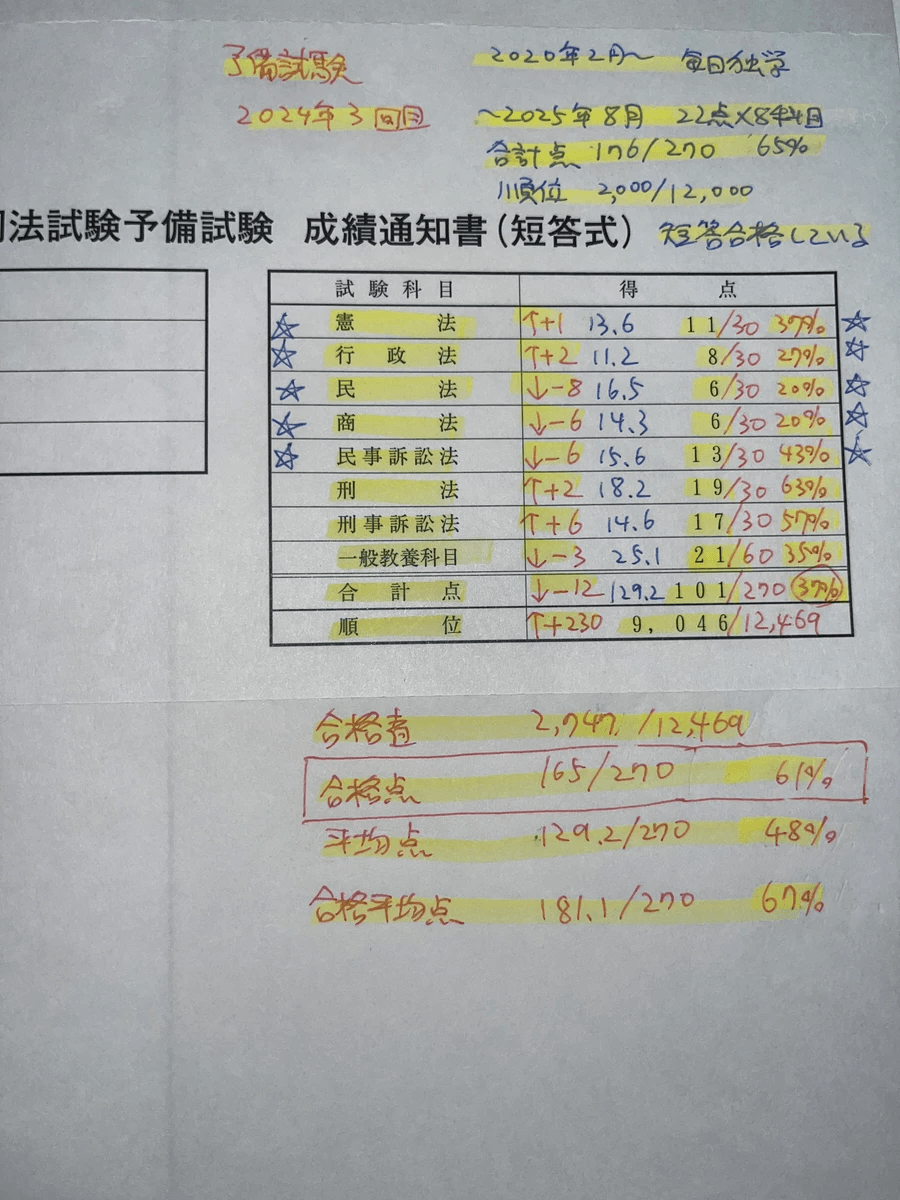 予備試験 2020年2月〜 毎日独学
2024年3回目 〜2025年8月 22点×8科目
合計点 176/270 65%
順位 2,000/12,000
司法試験予備試験 成績通知書(短答式) 短答合格している
試験科目 得点
☆ 憲法 ↑+1 13.6 11/30 37% ☆
☆ 行政法 ↑+2 11.2 8/30 27% ☆
☆ 民法 ↓-8 16.5 6/30 20% ☆
☆ 商法 ↓-6 14.3 6/30 20% ☆
☆ 民事訴訟法 ↓-6 15.6 13/30 43% ☆
刑法 ↑+2 18.2 19/30 63%
刑事訴訟法 ↑+6 14.6 17/30 57%
一般教養科目 ↓-3 25.1 21/60 35%
合計点 ↓-12 129.2 101/270 37%
順位 ↑+230 9,046/12,469
合格者 2,747/12,469
合格点 165/270 61%
平均点 129.2/270 48%
合格平均点 181.1/270 67%